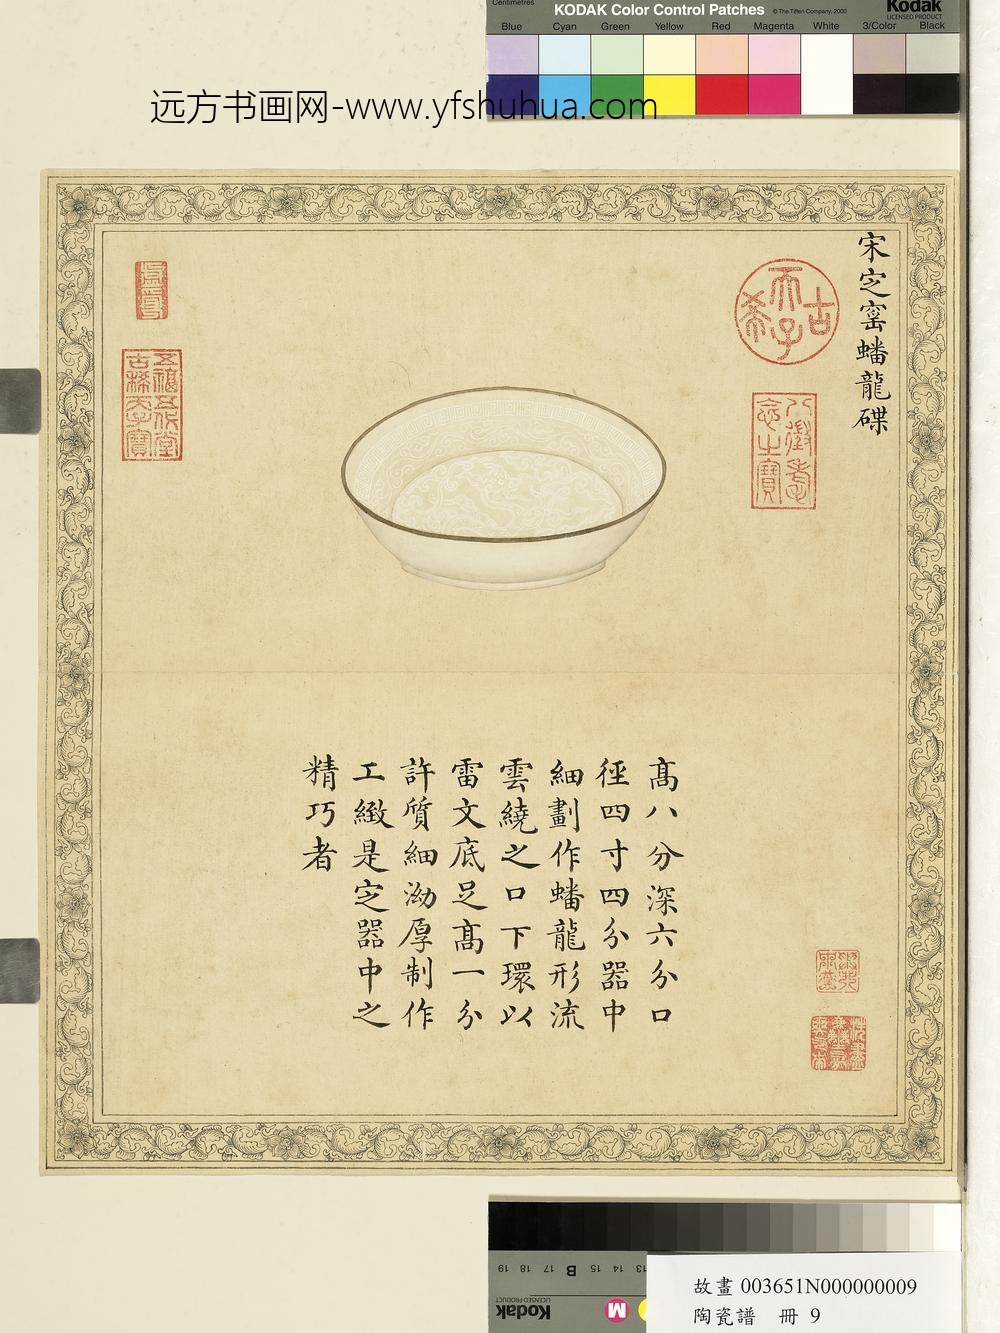 Centimetres
KODAK Color Control Patches
© The Tiffen Company, 2000
Kodak
LICENSED PRODUCT
Blue Cyan Green Yellow Red Magenta White 3/Color Black
远方书画网-www.yfshuhua.com
宋定窰蟠龍碟
古希天子
八徵耄念之寶
五福五代堂古稀天子寶
高八分深六分口
徑四寸四分器中
細劃作蟠龍形流
雲繞之口下環以
雷文底足高一分
許質細泑厚制作
工緻是定器中之
精巧者
19 18 17 B 16 15 14 13
Kodak
LICENSED PRODUCT
M
故畫 003651N000000009
陶瓷譜 冊 9